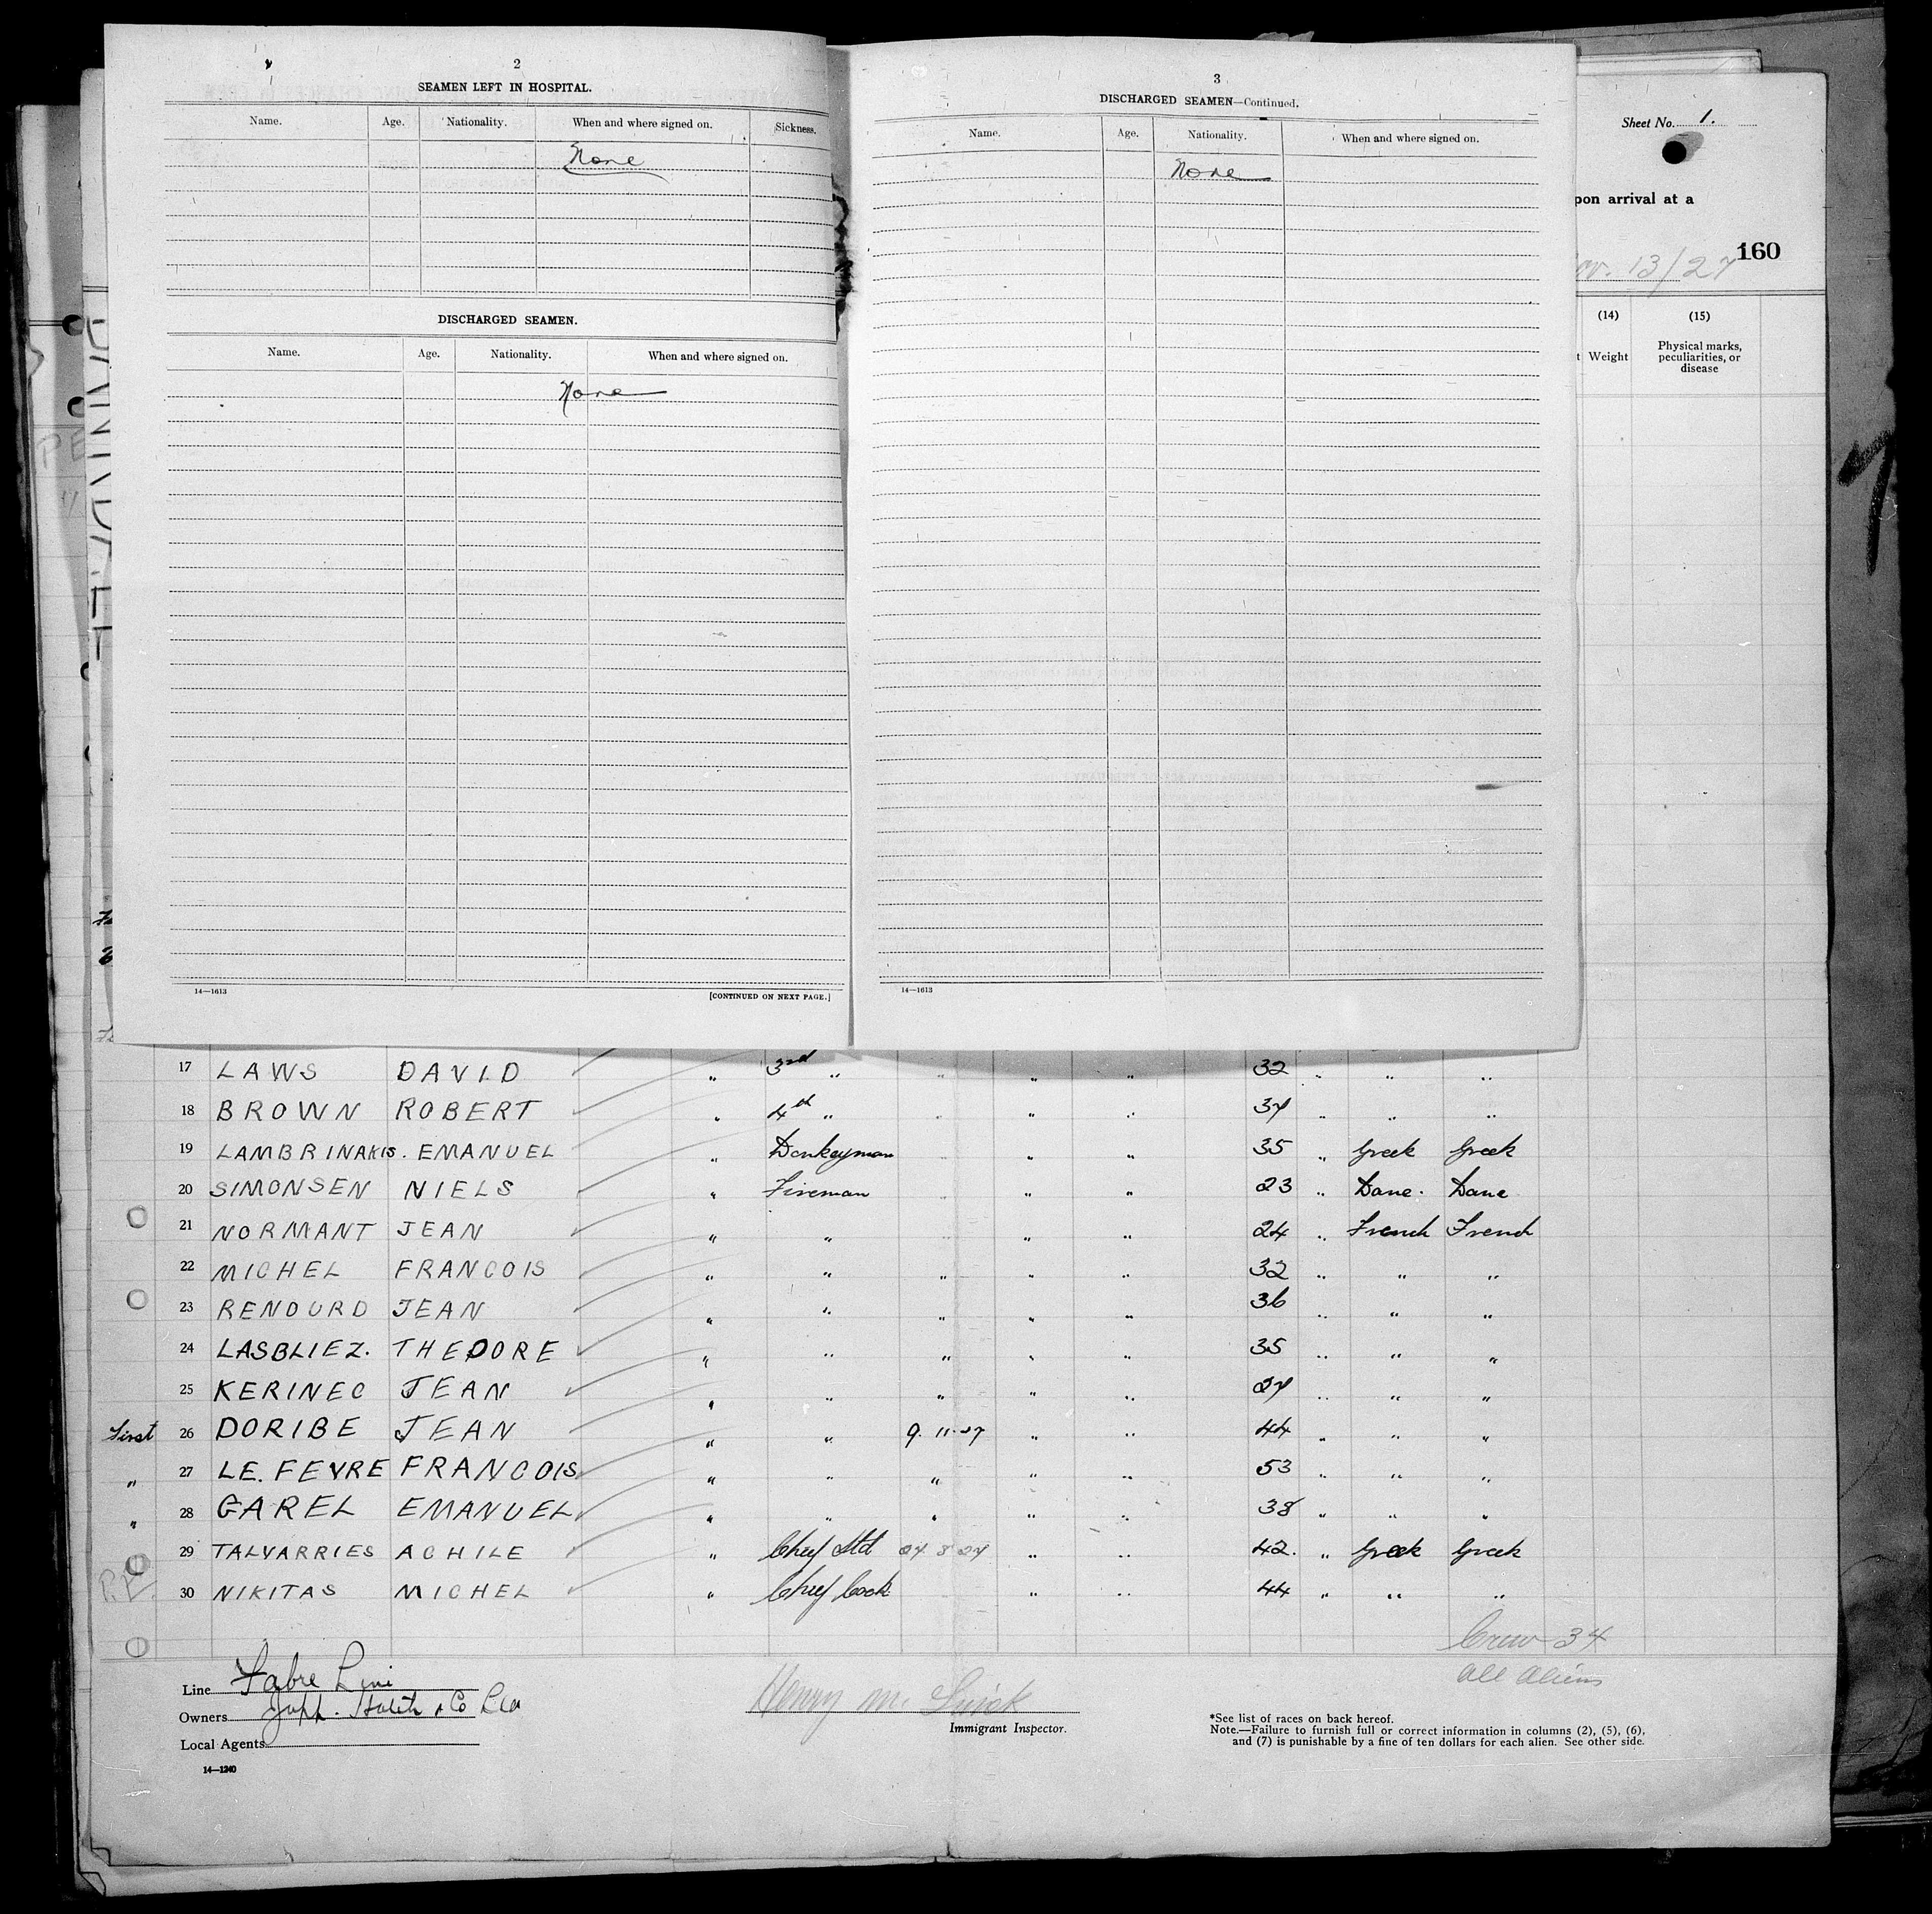 2
SEAMEN LEFT IN HOSPITAL.
Name. Age. Nationality. When and where signed on. Sickness.
None
DISCHARGED SEAMEN.
Name. Age. Nationality. When and where signed on.
None
14—1613 [CONTINUED ON NEXT PAGE.]
3
DISCHARGED SEAMEN—Continued.
Name. Age. Nationality. When and where signed on.
None
14—1613
Sheet No. 1.
pon arrival at a
160
13/27
(14) (15)
t Weight Physical marks, peculiarities, or disease
17 LAWS DAVID " 3rd " " " " 32 " " "
18 BROWN ROBERT " 4th " " " " 37 " " "
19 LAMBRINAKIS. EMANUEL " Donkeyman " " " 35 " Greek Greek
20 SIMONSEN NIELS " Fireman " " " 23 " Dane. Dane
21 NORMANT JEAN " " " " 24 " French French
22 MICHEL FRANCOIS " " " " " 32 " " "
23 RENOURD JEAN " " " " " 36 " " "
24 LASBLIEZ. THEDORE " " " " " 35 " " "
25 KERINEC JEAN " " " " " 27 " " "
First 26 DORIBE JEAN " " 9.11.27 " " 44 " " "
" 27 LE. FEVRE FRANCOIS " " " " " 53 " " "
" 28 GAREL EMANUEL " " " " " 38 " " "
29 TALVARRIES ACHILE " Chief Std 27 8 27 " " 42. " Greek Greek
P.P. 30 NIKITAS MICHEL " Chief Cook " " 44 " " "
Crew 34
all aliens
Line Fabre Line
Owners & Co
Local Agents
14—1240
Henry M.
Immigrant Inspector.
*See list of races on back hereof.
Note.—Failure to furnish full or correct information in columns (2), (5), (6),
and (7) is punishable by a fine of ten dollars for each alien. See other side.